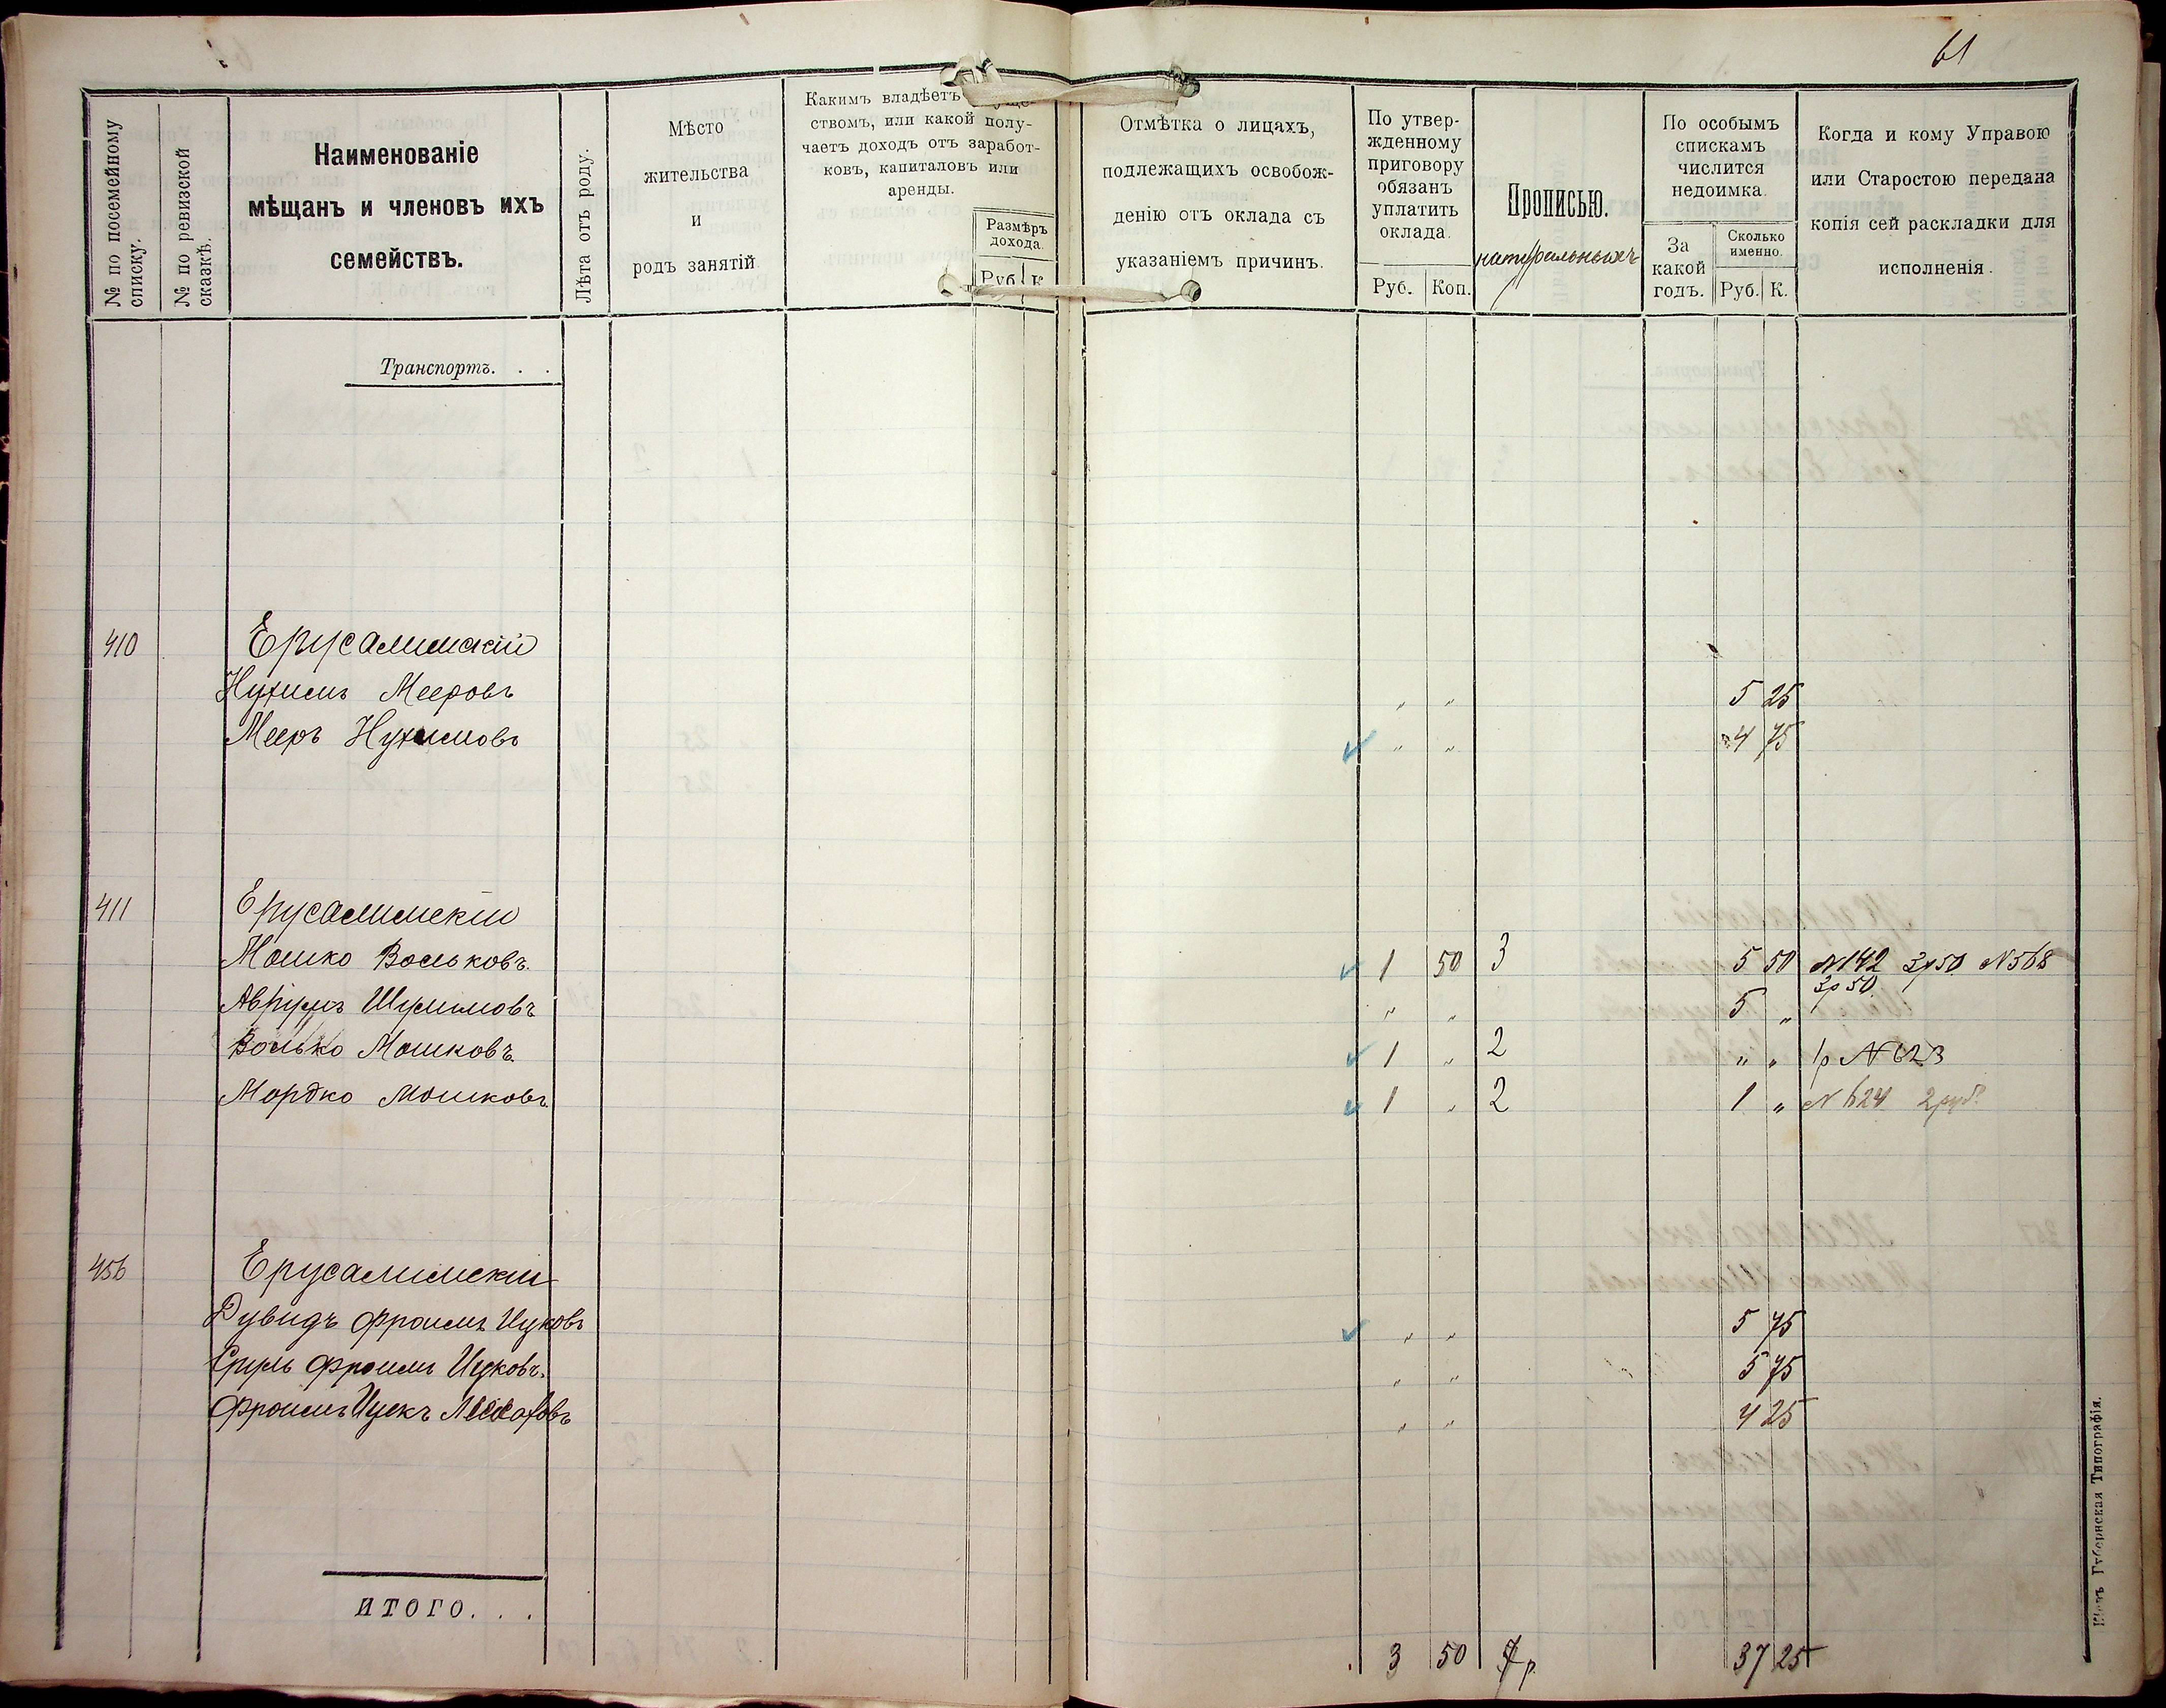 61
№ по посемейному списку.
№ по ревизской сказкѣ.
Наименованіе
мѣщанъ и членовъ ихъ
семействъ.
Лѣта отъ роду.
Мѣсто
жительства
и
родъ занятій.
Какимъ владѣетъ
ствомъ, или какой полу-
чаетъ доходъ отъ заработ-
ковъ, капиталовъ или
аренды.
Размѣръ
дохода.
Руб. К.
Отмѣтка о лицахъ,
подлежащихъ освобож-
денію отъ оклада съ
указаніемъ причинъ.
По утвер-
жденному
приговору
обязанъ
уплатить
оклада.
Руб. Коп.
Прописью.
натуральныхъ
По особымъ
спискамъ
числится
недоимка.
За
какой
годъ.
Сколько
именно.
Руб. К.
Когда и кому Управою
или Старостою передана
копія сей раскладки для
исполненія.
Транспортъ. . .
410 Ерусалимскій
Нухимъ Мееровъ " " 5 25
Мееръ Нухимовъ " " 4 75
411 Ерусалимскій
Мошко Вольковъ. 1 50 3 5 50 №142 3р50 №568
3р 50.
Аврумъ Шулимовъ " " 5 "
Волько Мошковъ 1 " 2 " " 1р №623
Мордко Мошковъ. 1 " 2 1 " №624 2 руб
456 Ерусалимскій
Дувидъ Фроимъ Ицковъ " " 5 75
Сруль Фроимъ Ицковъ. " " 5 75
Фроимъ Ицекъ " " 4 25
ИТОГО. . .
3 50 7р 37 25
Губернская Типографія.